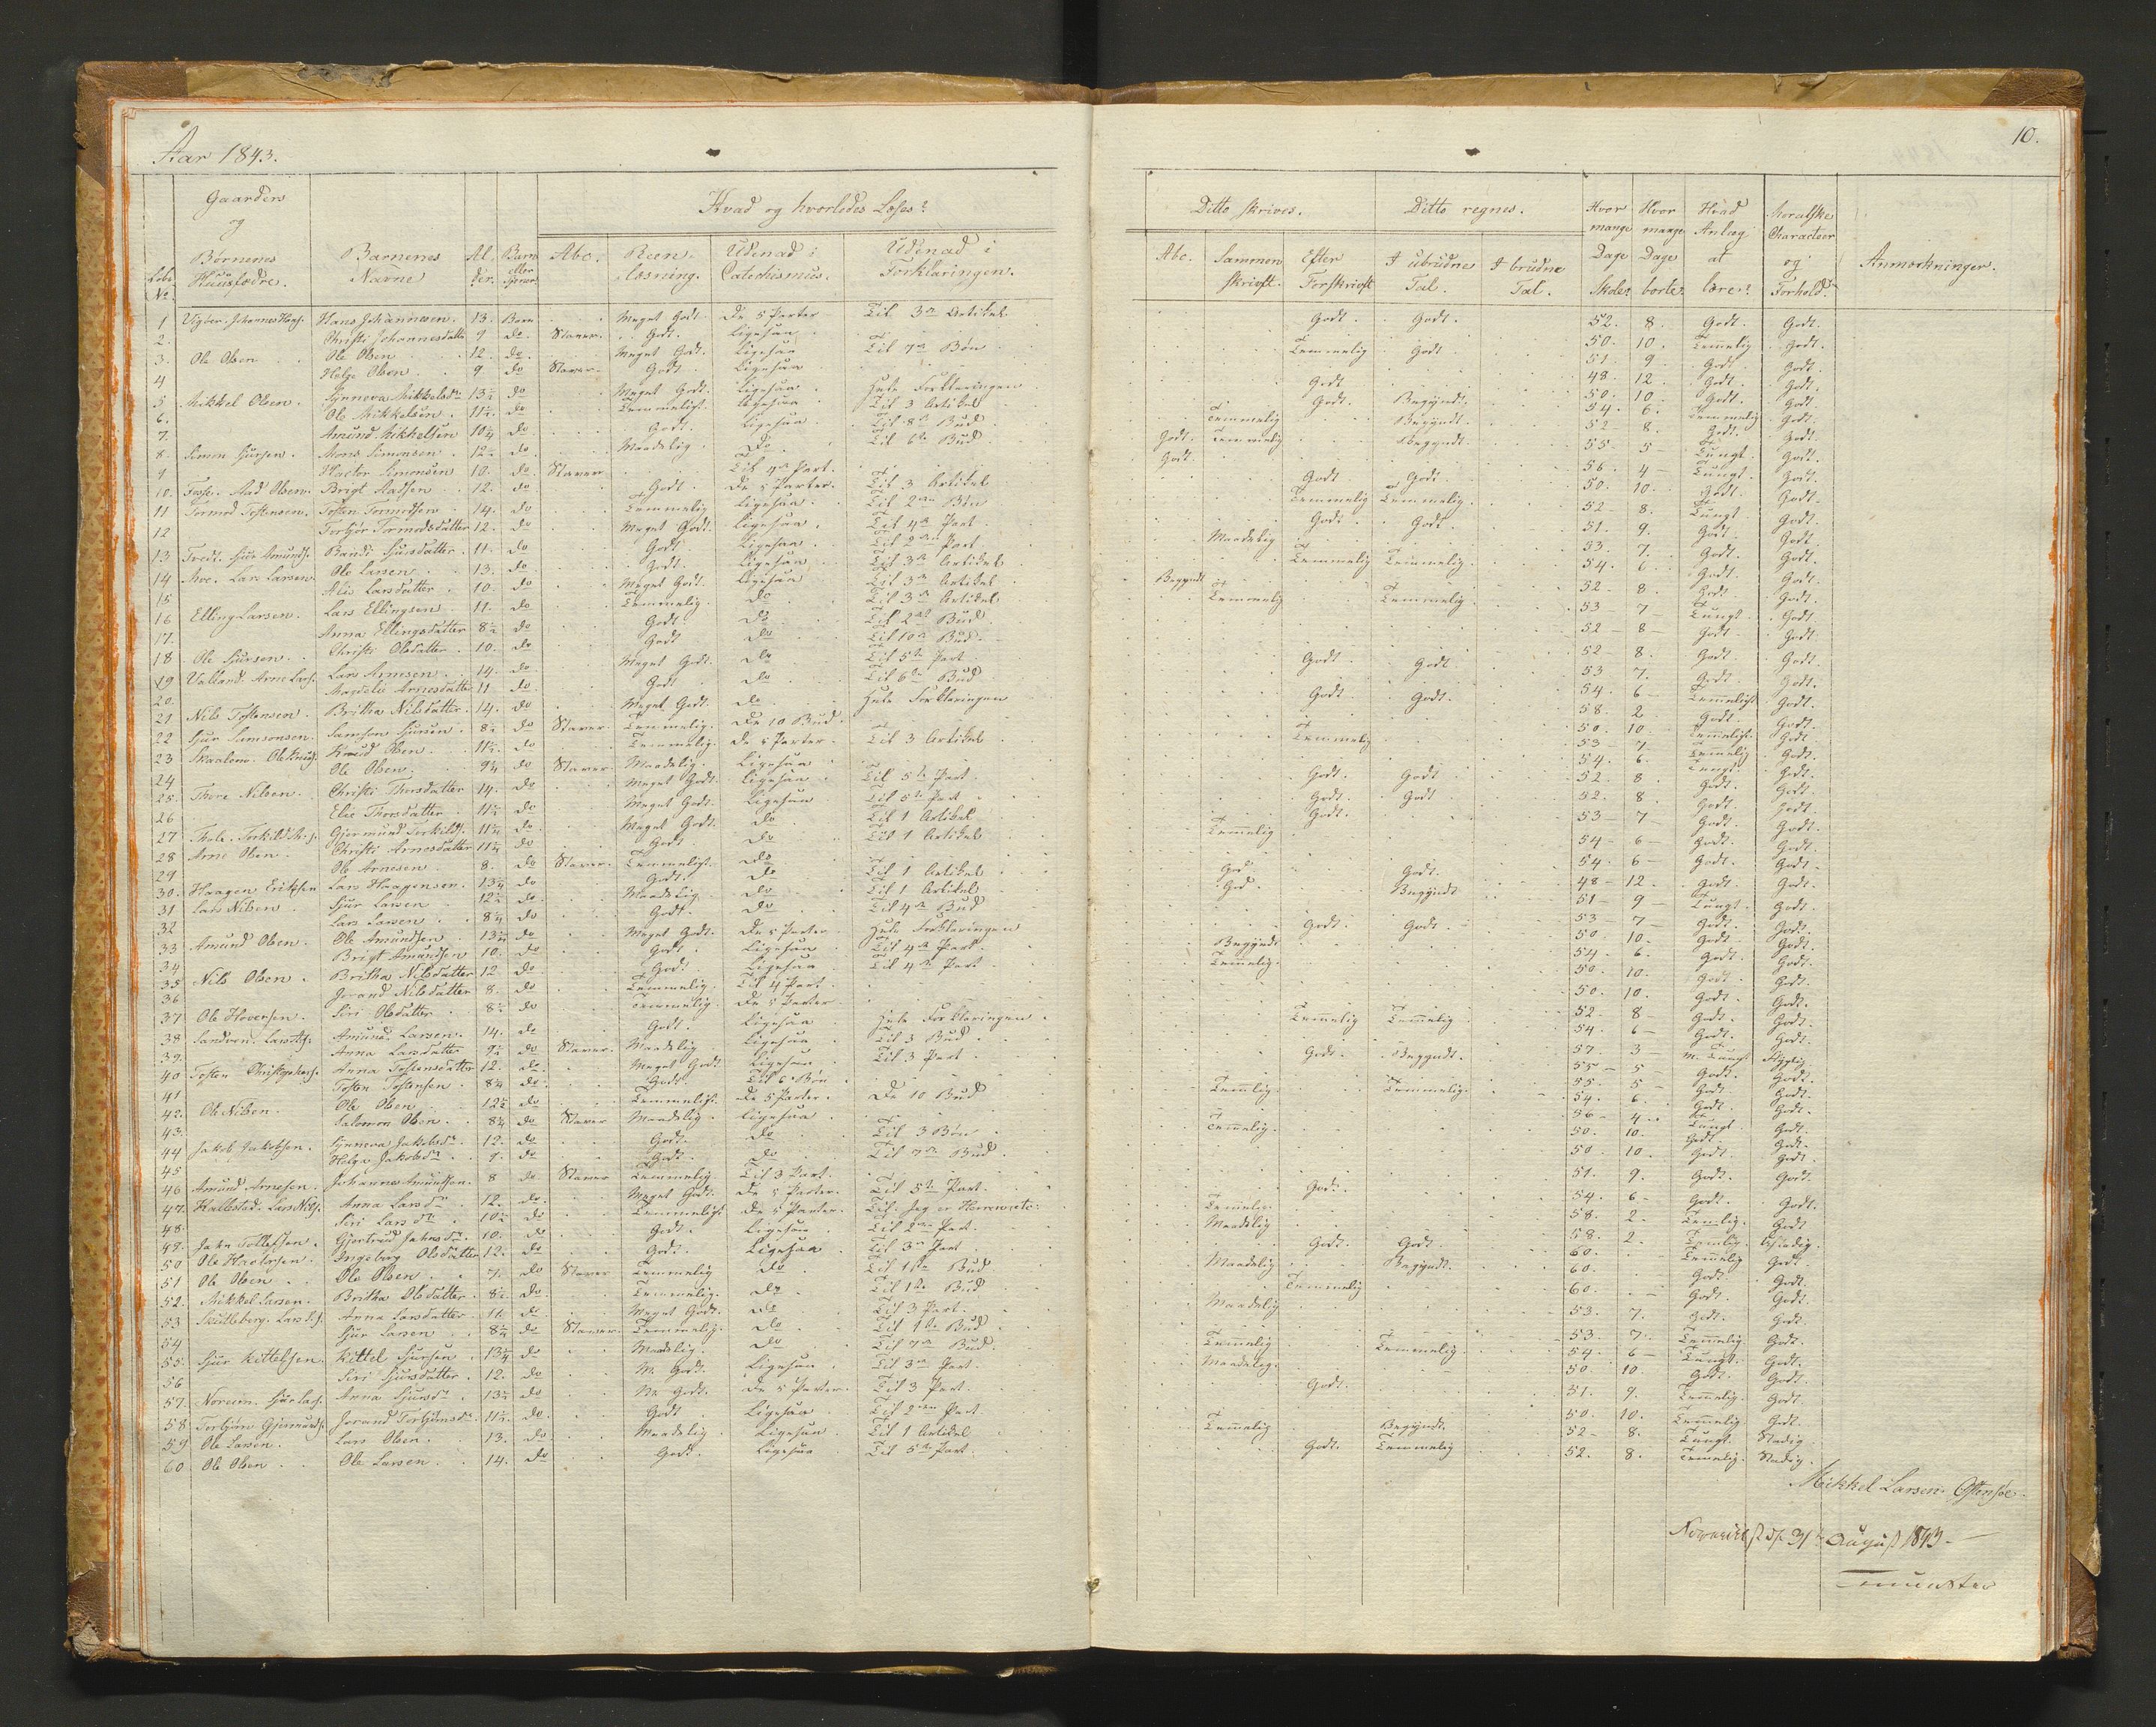 Aar 1843.
10.
Gaardens og Børnenes Huusfædre.
Barnenes Navne
Al der.
Barn eller Tjener
Hvad og hvorledes Læses?
Abc.
Reen læsning.
Udenad i Catechismus.
Udenad i Forklaringen.
Ditto skrives.
Abc.
Sammen skrift.
Efter Forskrift
Ditto regnes.
I ubrudne Tal.
I brudne Tal.
Hvor mange Dage Skole?
Hvor mange Dage borte?
Hvad Anlæg at lære?
Moralske Characteer og Forhold?
Anmærkninger.
1 Johannes Hans Johannesen. 13. Barn Meget Godt De 5 Parter Til 3die Artikel Godt. Godt. 52. 8. Godt. Godt.
2. Christi Johannesdatter 9 do Staver. Godt. Ligesaa 50. 10. Temmelig Godt.
3. Ole Olsen Ole Olsen 12. do. Meget Godt. Ligesaa Til 7de Bøn Temmelig Godt 51. 9. Godt Godt.
4 Helge Olsen 9 do Staver. Godt. Ligesaa 48. 12. Godt. Godt.
5 Mikkel Olsen. Synneva Mikkelsdr 13½ do Meget Godt. Ligesaa Hele Forklaringen Godt. 50. 10. Godt. Godt.
6. Ole Mikkelsen. 11½ do Temmeligt. Ligesaa Til 3 Artikel Godt. Begyndt. 54. 6. Temmelig Godt.
7. Amund Mikkelsen 10¼ do Godt. Ligesaa Til 8de Bud Temmelig Begyndt. 52 8. Godt. Godt.
8. Simon Sjursen. Mons Simonsen 12½ do. Maadelig Do Til 6te Bud Godt. Temmelig Begyndt. 55 5 Tungt. Godt.
9 Hactor Simonsen 10. do Staver Til 4de Part. Godt 56. 4 Tungt. Godt.
10. Aad Olsen. Brigt Aadsen 12. do Godt. De 5 Parter. Til 3 Artikel Godt Godt. 50. 10. Godt. Godt.
11 Tormod Tostensen. Tosten Tormodsen 14. do Temmelig Ligesaa Til 2den Bøn Temmelig Temmelig. 52 8. Tungt Godt.
12 Tormodsdatter 12. do Meget Godt. Ligesaa Til 4de Part Godt. Godt. 51. 9. Godt Godt.
13 Sjur Amunds. Randi Sjursdatter. 11. do Godt Ligesaa Til 2den Part Maadelig 53. 7. Godt. Godt.
14 Lars Larsen Ole Larsen 13. do Godt. Ligesaa Til 3die Artikel Temmelig Temmelig. 54. 6. Godt. Godt.
15 Larsdatter 10. do Meget Godt. Ligesaa Til 3die Artikel Begyndt 52 8. Godt. Godt.
16 Elling Larsen. Lars Ellingsen 11. do Temmelig. Do Til 3die Artikel Temmelig Temmelig. 53 7 Tungt Godt
17. Anna Ellingsdatter 8½ do Godt Do Til 2det Bud 52 8 Godt. Godt.
18 Ole Sjursen. Christi Olsdatter 10. do Godt Do Til 10de Bud 52 8. Godt Godt.
19 Valland. Arne Lars. Lars Arnesen. 14. do. Meget Godt. Do Til 5te Part Godt. Godt 53 7. Godt. Godt.
20. Arnesdatter 11 do Godt Do Til 6te Bud 54. 6 Temmeligt Godt.
21 Nils Tostensen. Britha Nilsdatter. 14. do Meget Godt. do Hele Forklaringen Godt. Godt. 58. 2 Godt. Godt.
22 Sjur Samsonsen. Samson Sjursen. 8½ do Staver Temmelig. De 10 Bud. 50. 10 Temmeligt. Godt
23 Knud Olsen. 11½ do Temmelig. De 5 Parter. Til 3 Artikel Temmelig 53 7. Temmelig Godt.
24 Ole Olsen. 9¼ do Staver Maadelig. Ligesaa 54. 6. Tungt. Godt.
25. Thore Nilsen. Christi Thorsdatter 14. do Meget Godt. Ligesaa Til 5te Part Godt. Godt 52. 8. Godt. Godt.
26 Elie Thorsdatter 11½ do Meget Godt. Ligesaa Til 5te Part Godt. Godt 52. 8. Godt. Godt.
27 Gjermund Torkilds. 11¼ do Meget Godt. do Til 1 Artikel Godt. 53 7 Godt. Godt.
28 Arne Olsen. Christi Arnesdatter 11¼ do Godt Do Til 1 Artikel Temmelig 54 6 Godt. Godt.
29 Ole Arnesen. 8. do Staver. Temmeligt. Do 54. 6 Godt. Godt.
30. Haagen Erichsen Lars Haagensen. 13¼ do Godt. Do Til 1 Artikel God. Godt. 48 12. Godt. Godt.
31 Lars Nilsen Sjur Larsen 12¼ do Maadelig Do Til 1 Artikel God. Begyndt 51 9 Tungt. Godt.
32 Lars Larsen 8¼ do Godt. Do Til 4de Bud 53 7 Godt. Godt.
33 Amund Olsen. Ole Amundsen do Meget Godt. De 5 Parter. Hele Forklaringen Godt. Godt. 50. 10. Godt Godt.
34 Brigt Amundsen 10. do Godt. Ligesaa Til 4de Part. Begyndt 54 6. Godt. Godt.
35 Nils Olsen. Britha Nilsdatter 12 do Godt Ligesaa Til 4de Part Temmelig. 50. 10. Godt. Godt.
36 Nilsdatter 8. do Temmelig. Til 4 Part. 50. 10. Godt. Godt.
37 Ole Siri Olsdatter 8½ do Temmelig. De 5 Parter. 52. 8 Godt. Godt.
38 Sandven. Amund Larsen. 14. do Godt. Ligesaa Hele Forklaringen. Temmelig Temmelig 54. 6 Godt. Godt.
39. Anna Larsdatter 9½ do Staver. Maadelig Ligesaa Til 3 Bud 57. 3 M. Tungt
40 Tosten Christophers. Anna Tostensdatter 12. do Meget Godt Ligesaa Til 3 Part Godt. Begyndt. 55 5 Godt. Godt.
41 Tosten Tostensen. 8¼ do. Godt. Til 6 Bøn 55. 5 Godt Godt.
42. Ole Nilsen. Ole Olsen 12½ do Temmeligt. De 5 Parter. De 10 Bud Temmelig. Temmelig. 54. 6. Godt. Godt.
43. Salomon Olsen. 8¼ do Staver Maadelig. Ligesaa 56 4 Tungt Godt.
44 Jakob Jakobsen. Synneva Jakobsdr 12. do Godt. Do Til 3 Bøn Temmelig. 50. 10. Godt. Godt.
45 Helga Jakobsdr 9. do Godt. Do Til 7de Bud 50. 10. Godt. Godt.
46 Amund Arnesen. Johannes Amundsen. 8 do Staver Temmelig. Til 3 Part. 51. 9. Godt. Godt.
47. Lars Nils. Anna Larsdr 12. do. Meget Godt. De 5 Parter. Til 5te Part. Godt. 54. 6 Godt. Godt.
48. Siri Larsdr 10½ do Temmeligt De 5 Parter. Til Jeg er Herren etc: Temmelig. 58. 2 Temmelig. Godt
49. Gjertrud 10. do Godt. Ligesaa Til 2den Part. Maadelig 58. 2. Temmelig.
50 Ole Ingeborg Olsdatter 12. do Godt. Ligesaa Til 3die Part Godt. Godt. 60. Temmelig Godt.
51 Ole Olsen Ole Olsen. 7. do Staver Temmelig Do Til 1ste Bud Maadelig Begyndt. 60. Godt. Godt.
52. Mikkel Larsen. Britha Olsdatter. 8½ do. Temmelig. Do Til 1ste Bud Temmelig 60. Godt. Godt.
53 Skutleberg. Lars Anna Larsdatter. 11. do Meget Godt. Do Til 3 Part. Maadelig 53. 7. Godt. Godt.
54 Sjur Larsen 8¼ do Staver. Temmelig. Do Til 1ste Bud 53. 7 Temmelig Godt.
55. Sjur Kittelsen. Kittel Sjursen 13¼ do Maadelig. Do Til 7de Bud. Temmelig Temmelig. 54. 6 Tungt. Godt.
56 Siri Sjursdatter. 12. do M. Godt. Ligesaa Til 3die Part. Maadelig. 50. 10 Godt. Godt.
57. Anna Sjursdr 13½ do M. Godt. De 5 Parter. Til 3 Part. Godt. 51. 9. Temmelig. Godt
58 Torbjørn 11½ do. Godt Ligesaa Til 2den Part 50. 10. Temmelig Godt.
59 Ole Larsen. Lars Olsen. 13. do Maadelig Ligesaa Til 1 Artikel Temmelig Begyndt. 52 8. Tungt. Stadig
60 Ole Olsen Ole Larsen. 14. do Godt. Ligesaa Til 5te Part. Godt. Temmelig 52. 8. Temmelig. Stadig.
Mikkel Larsen
31 August 1843